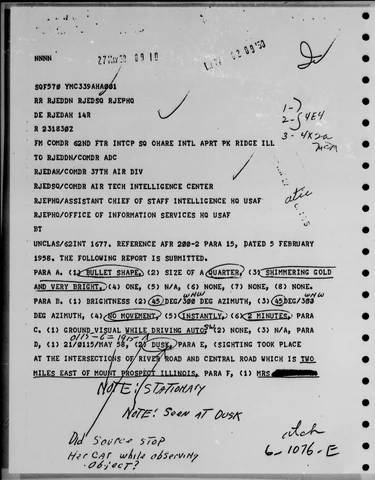 NNNN
27 09 10
09 '50
SQF570 YMC339AHA001
RR RJEDDN RJEDSQ RJEPHQ
DE RJEDAH 14R
1-
2- 4E4
3- 4X2a
R 231830Z
FM COMDR 62ND FTR INTCP SQ OHARE INTL APRT PK RIDGE ILL
TO RJEDDN/COMDR ADC
RJEDAH/COMDR 37TH AIR DIV
RJEDSQ/COMDR AIR TECH INTELLIGENCE CENTER
RJEPHQ/ASSISTANT CHIEF OF STAFF INTELLIGENCE HQ USAF
atic
RJEPHQ/OFFICE OF INFORMATION SERVICES HQ USAF
BT
UNCLAS/62INT 1677. REFERENCE AFR 200-2 PARA 15, DATED 5 FEBRUARY
1958. THE FOLLOWING REPORT IS SUBMITTED.
PARA A. (1) BULLET SHAPE, (2) SIZE OF A QUARTER, (3) SHIMMERING GOLD
AND VERY BRIGHT, (4) ONE, (5) N/A, (6) NONE, (7) NONE, (8) NONE.
WNW WNW
PARA B. (1) BRIGHTNESS (2) 45 DEG/300 DEG AZIMUTH, (3) 45 DEG/300
DEG AZIMUTH, (4) NO MOVEMENT, (5) INSTANTLY, (6) 2 MINUTES, PARA
C. (1) GROUND VISUAL WHILE DRIVING AUTO, (2) NONE, (3) N/A, PARA
0115-6=1915
D, (1) 21/0115/MAY 58, (2) DUSK, PARA E, (SIGHTING TOOK PLACE
AT THE INTERSECTIONS OF RIVER ROAD AND CENTRAL ROAD WHICH IS TWO
MILES EAST OF MOUNT PROSPECT ILLINOIS, PARA F, (1) MRS
NOTE: STATIONARY
NOTE: SEEN AT DUSK
Did Source STOP
Her CAr while observing
object?
6-1076-E